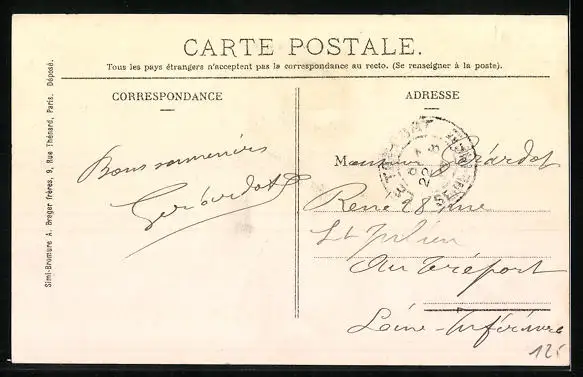 CARTE POSTALE.
Tous les pays étrangers n'acceptent pas la correspondance au recto. (Se renseigner à la poste).
CORRESPONDANCE
ADRESSE
Simi-Bromure A. Breger frères, 9, Rue Thénard, Paris. Déposé.
Bons souvenirs
Gerbardot
Monsieur Girardot
René 28 rue
St Julien
Au Tréport
Seine-Inférieure
125